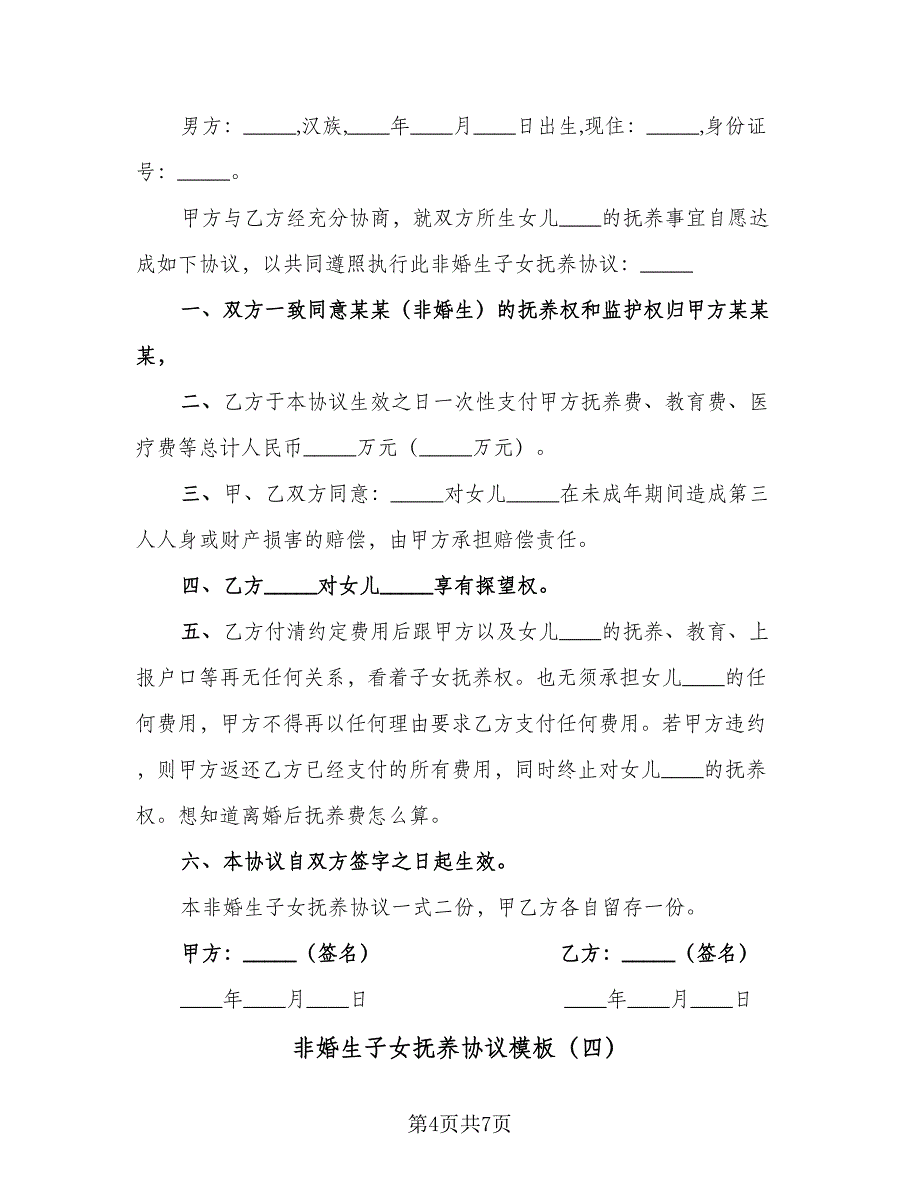 男方：_____,汉族,____年____月____日出生,现住：_____,身份证
号：_____。
甲方与乙方经充分协商，就双方所生女儿____的抚养事宜自愿达
成如下协议，以共同遵照执行此非婚生子女抚养协议：_____
一、双方一致同意某某（非婚生）的抚养权和监护权归甲方某某
某，
二、乙方于本协议生效之日一次性支付甲方抚养费、教育费、医
疗费等总计人民币_____万元（_____万元）。
三、甲、乙双方同意：_____对女儿_____在未成年期间造成第三
人人身或财产损害的赔偿，由甲方承担赔偿责任。
四、乙方_____对女儿_____享有探望权。
五、乙方付清约定费用后跟甲方以及女儿____的抚养、教育、上
报户口等再无任何关系，看着子女抚养权。也无须承担女儿____的任
何费用，甲方不得再以任何理由要求乙方支付任何费用。若甲方违约
，则甲方返还乙方已经支付的所有费用，同时终止对女儿____的抚养
权。想知道离婚后抚养费怎么算。
六、本协议自双方签字之日起生效。
本非婚生子女抚养协议一式二份，甲乙方各自留存一份。
甲方：_____（签名） 乙方：_____（签名）
____年____月____日 ____年____月____日
非婚生子女抚养协议模板（四）
第4页共7页